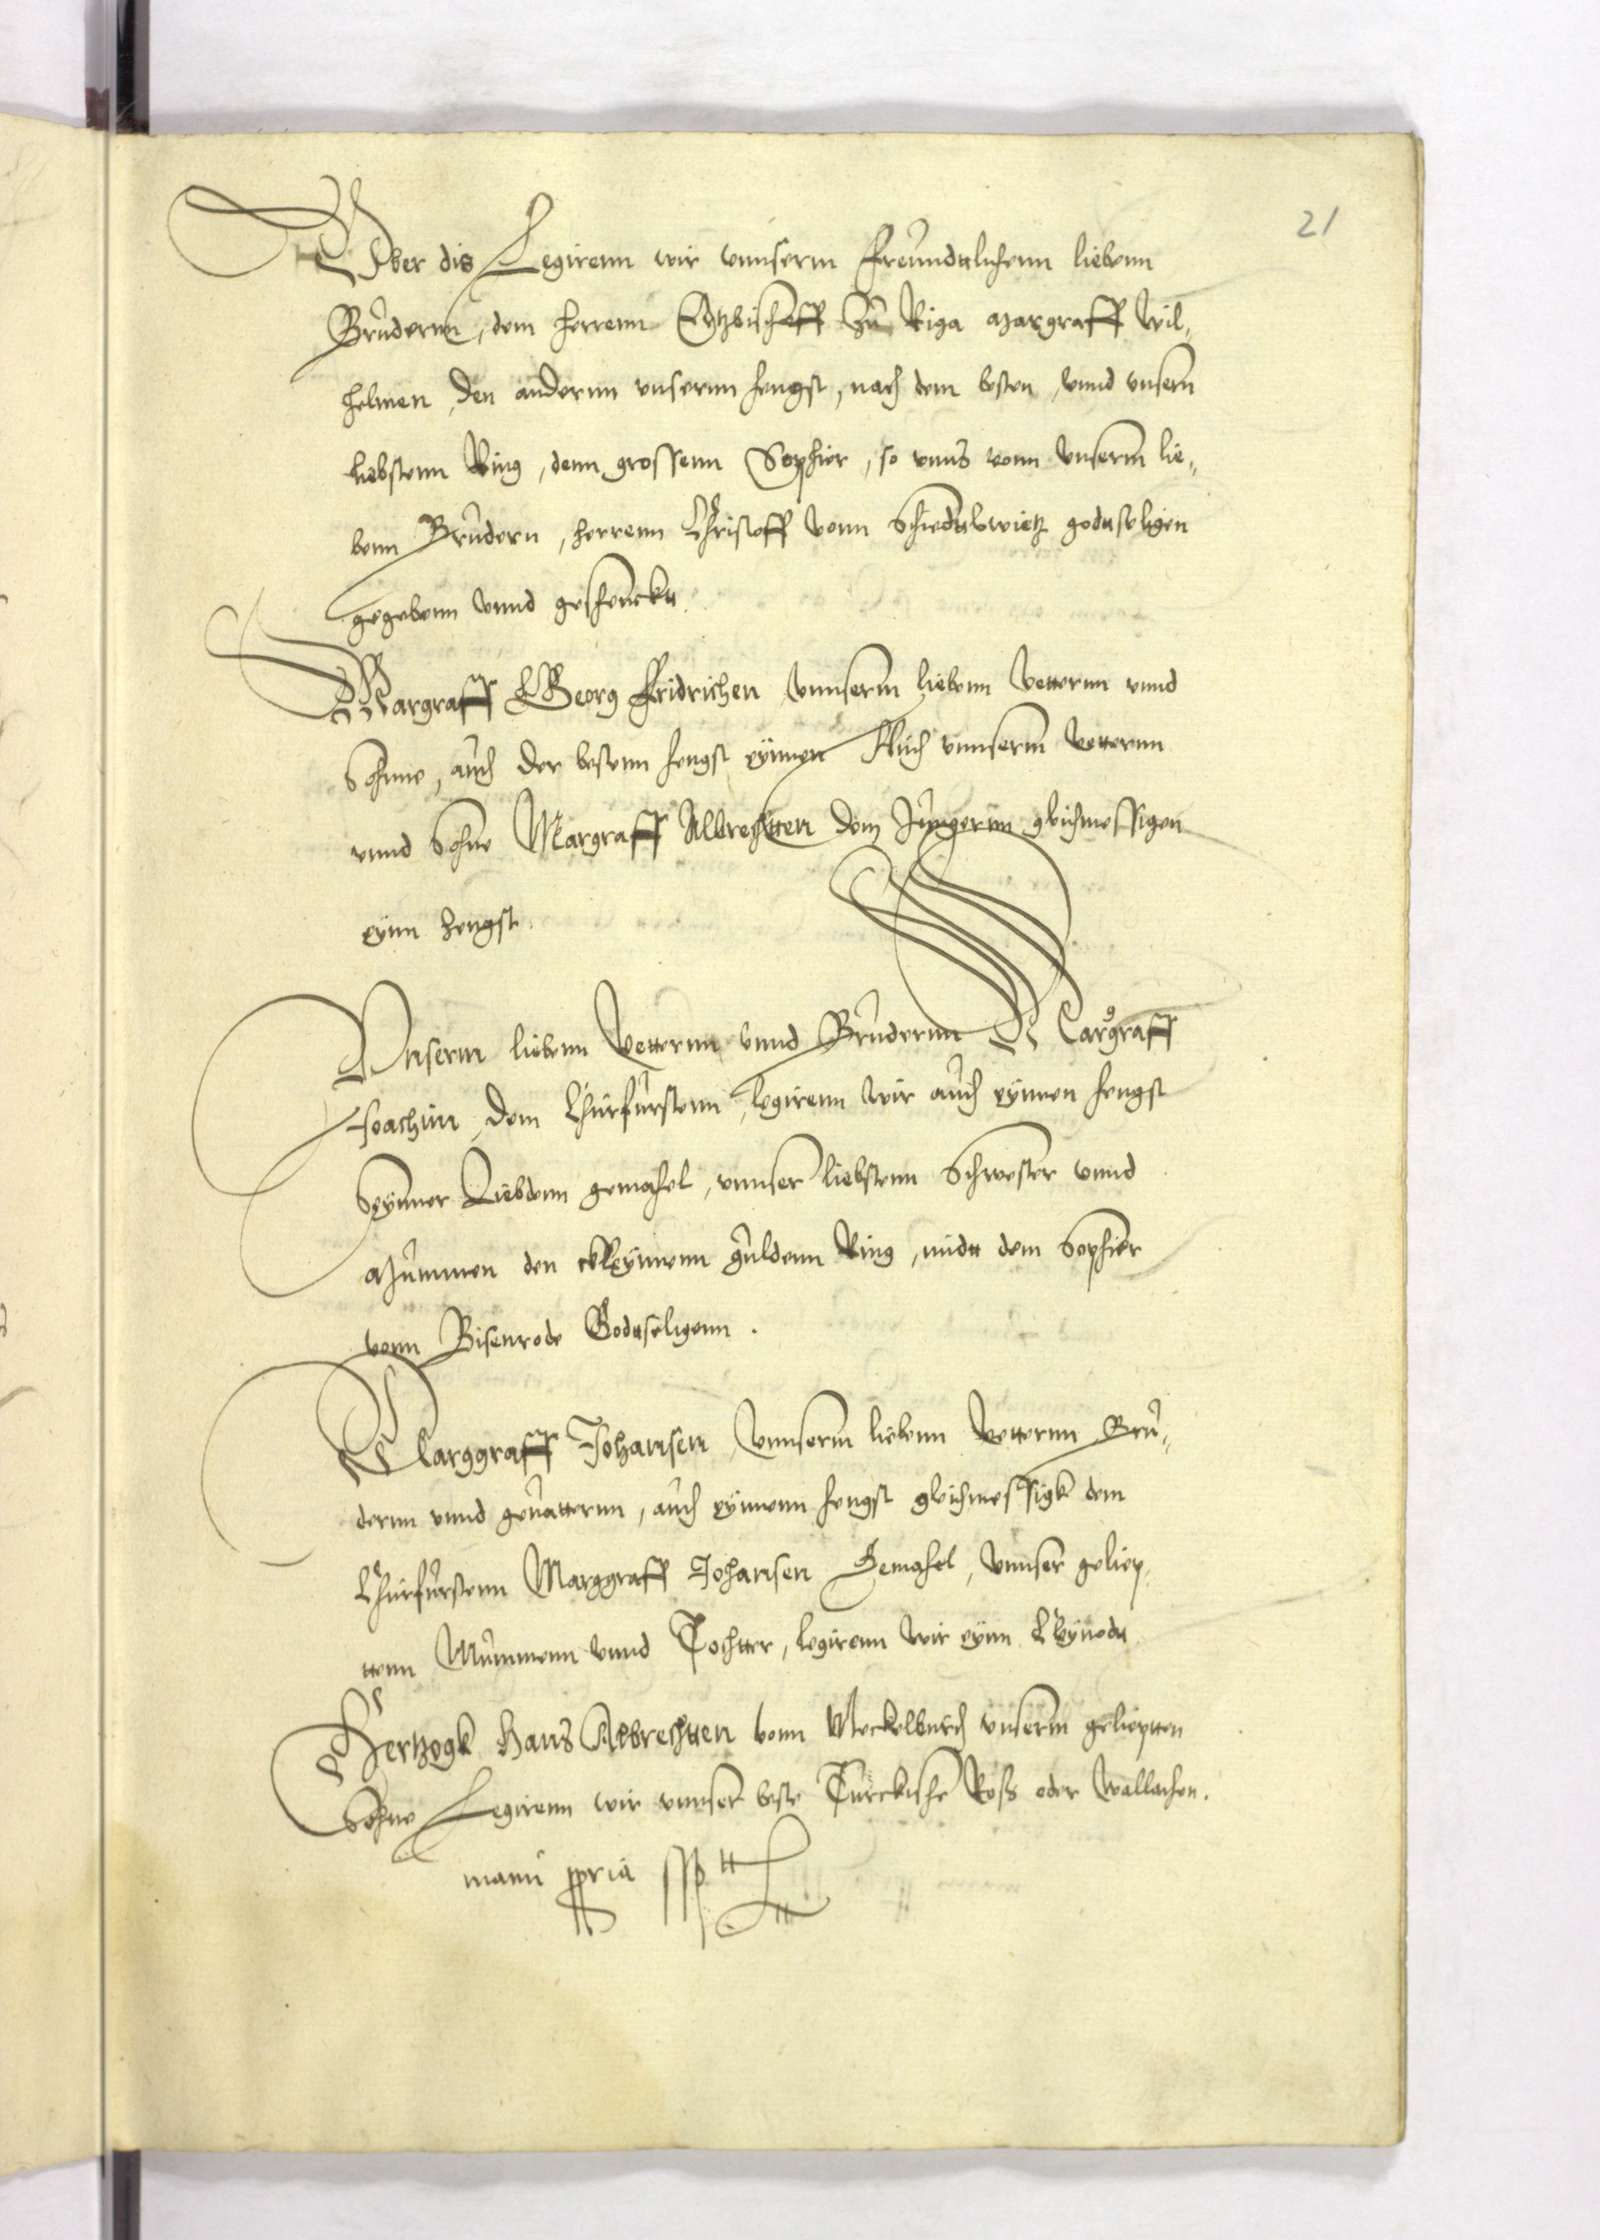 21
Vber dis Legirenn wir vnnserm Freundttlichenn liebenn
Brudernn, dem herrenn Ertzbischoff Zu Riga Margraff Wil,,
helmen, den andernn vnsernn hengst, nach dem besten, vnnd vnsern
liebstenn Ring, denn grossenn Sophier, so vnns vonn vnserm lie,,
benn Brudern, herrenn Christoff vonn gottseligen
gegebenn vnnd geschenckt
Margraff Georg Fridrichen vnnserm liebenn Vetternn vnnd
Sohnne, auch der bestenn hengst eynnen Auch vnnserm Vetternn
vnnd Sohne Margraff Albrechtten dem Jungernn gleichmessigen
eynn hengst.
Vnserm liebenn Vetternn vnnd Brudernn Marggraff
Joachim, dem Churfurstenn, legirenn wir auch eynnen hengst
Seynner Liebdenn gemahel, vnnser liebstenn Schwester vnnd
Mummen den kleynnenn guldenn Ring, midtt dem Sophier
vonn Bisenrode Godtseligenn.
Marggraff Johansen vnnserm liebenn Vetternn Bru,,
dernn vnnd geuatternn, auch eynnenn hengst gleichmessigk dem
Churfurstenn Marggraff Johansen Gemahel, vnnser geliep,
ttenn Mummenn vnnd Tochtter, legirenn wir eynn Cleynodtt
Hertzogk Hans Albrechtten vonn Meckelburch vnserm gelieptten
Sohne Legirenn wir vnnser beste Turckische Ross oder wallachen.
manu ppria sspt